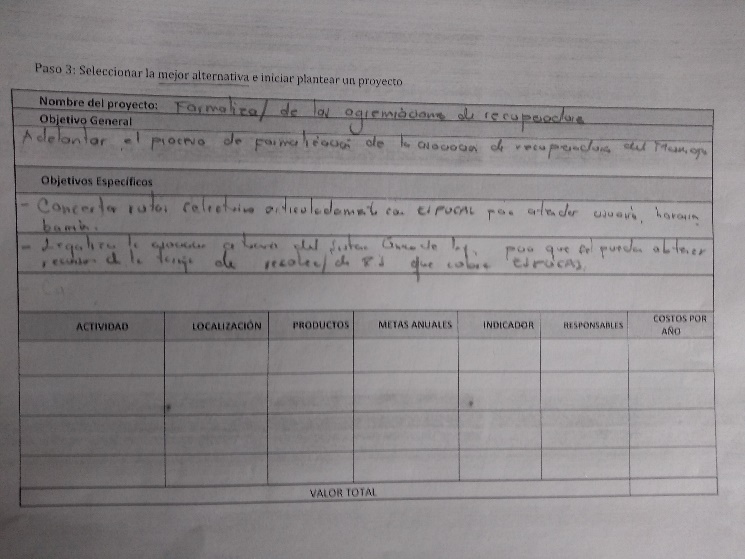 Paso 3: Seleccionar la mejor alternativa e iniciar plantear un proyecto
Nombre del proyecto: Formaliza/ de las agremiaciones de recuperadores
Objetivo General
Adelantar el proceso de formalización de la de recuperadores del
Objetivos Específicos
- Concertar rutas selectivas articuladamente con ESPUCAL para atender usuarios, horarios,
barrios.
- Legalizar la a traves del para que se puedan obtener
recursos de la tarifa de recolec/ de que cobra ESPUCAL.
ACTIVIDAD LOCALIZACIÓN PRODUCTOS METAS ANUALES INDICADOR RESPONSABLES COSTOS POR AÑO
VALOR TOTAL